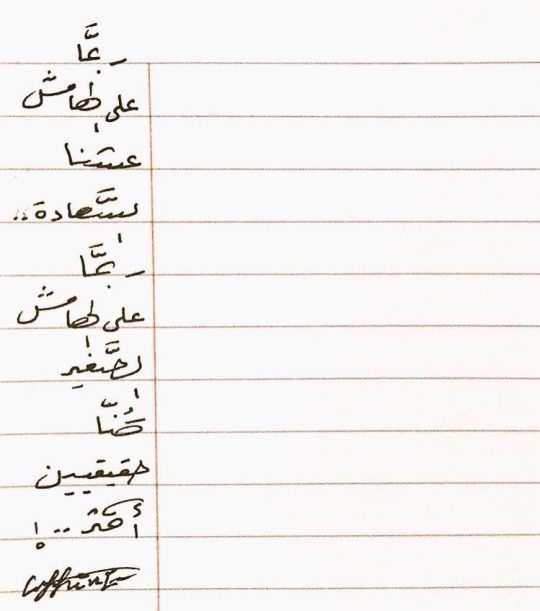 ربمَّا
على الهامش
عشنا
السَّعادة..
ربمَّا
على الهامش
الصَّغيرِ
كُنّا
حقيقيين
أكثر..!